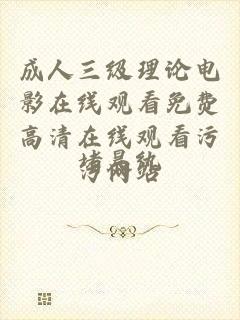 成人三级理论电
影在线观看免费
高清在线观看污
污网站